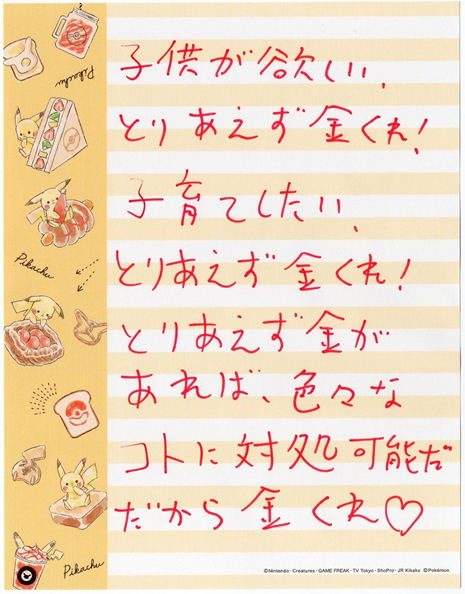 Pikachu
子供が欲しい、
とりあえず金くれ!
子育てしたい、
とりあえず金くれ!
Pikachu
とりあえず金が
あれば、色々な
コトに対処可能だ
だから金くれ♡
Pikachu
©Nintendo・Creatures・GAME FREAK・TV Tokyo・ShoPro・JR Kikaku ©Pokémon